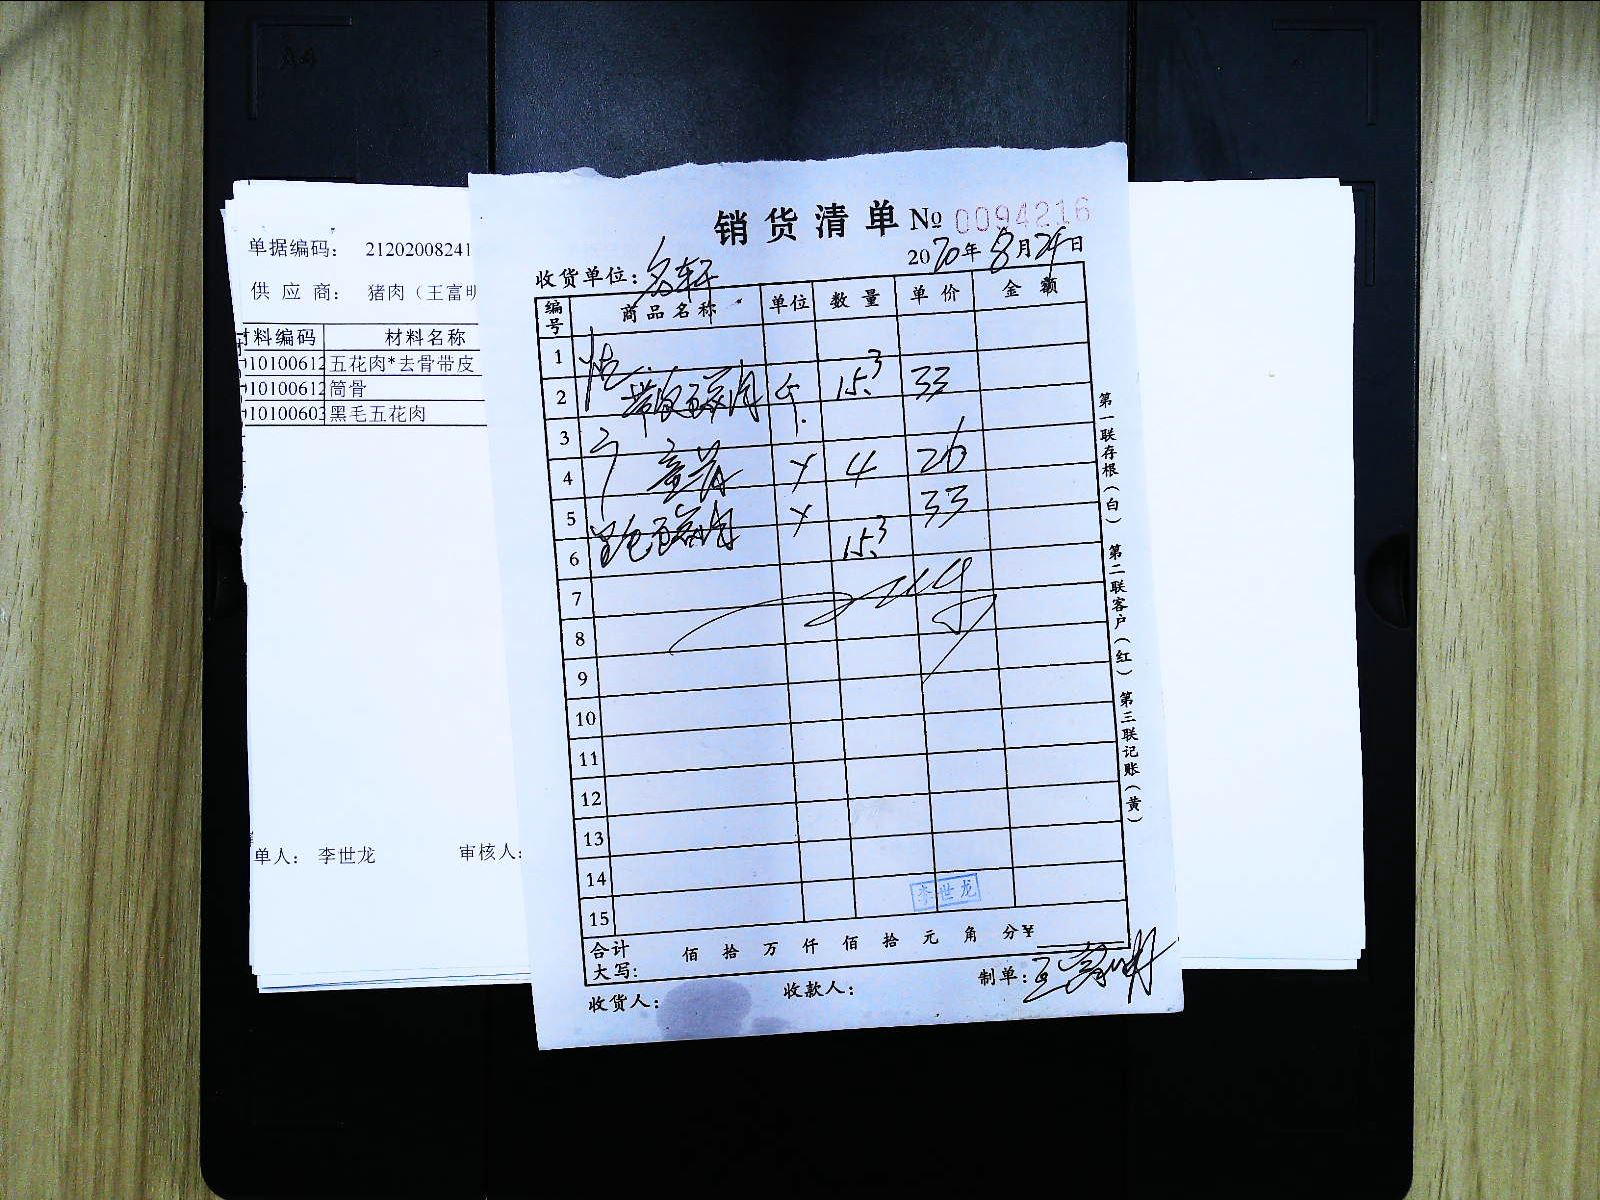 单据编码： 21202008241
供 应 商： 猪肉（王富明
材料编码 材料名称
10100612 五花肉*去骨带皮
10100612 筒骨
10100603 黑毛五花肉
单人： 李世龙 审核人：
销货清单 № 0094216
2020年8月24日
收货单位：名轩
编号 商品名称 单位 数量 单价 金额
1
2 带皮五花肉 斤 15.3 33
3
4 童骨 4 26
5 33
6 黑毛五花肉 15.3
7
8
9
10
11
12
13
14
15
李世龙
合计大写： 佰 拾 万 仟 佰 拾 元 角 分 ¥
收货人： 收款人： 制单：王富明
第一联存根（白） 第二联客户（红） 第三联记账（黄）